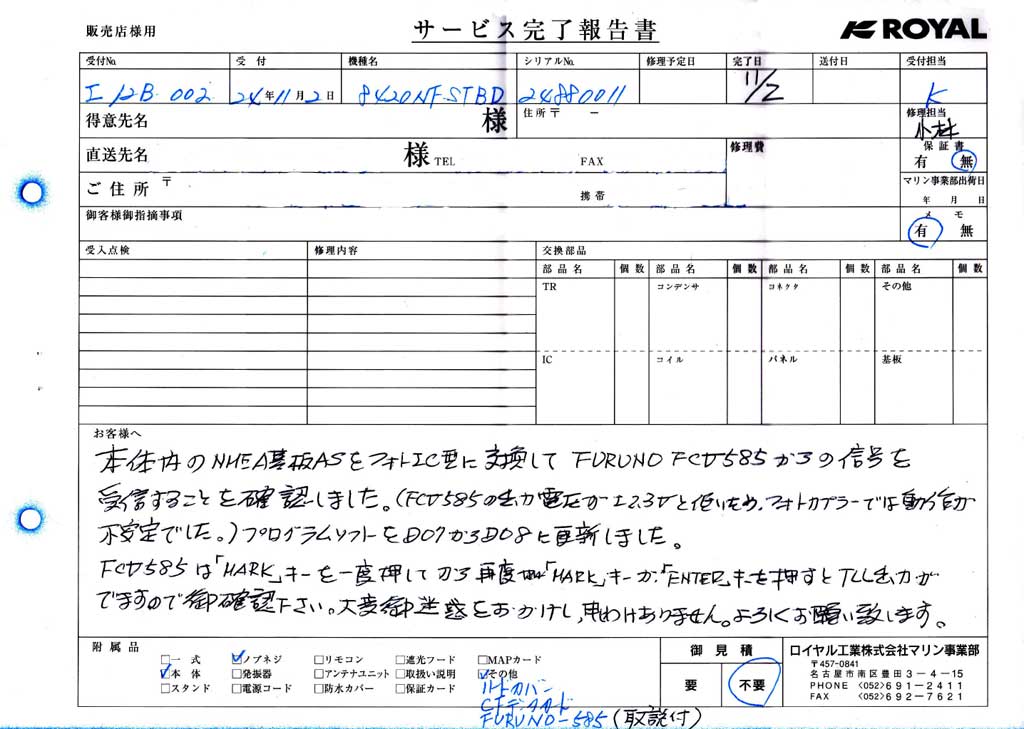 販売店様用
サービス完了報告書
ROYAL
受付No. 受付 機種名 シリアルNo. 修理予定日 完了日 送付日 受付担当
I12B 002 24年11月2日 8420NF-STBD 24880011 11/2 K
得意先名 様 住所〒 − 修理担当
小林
直送先名 様 TEL FAX 修理費 保証書
有 無
ご住所 〒 携帯 マリン事業部出荷日
年 月 日
御客様御指摘事項 メモ
有 無
受入点検 修理内容 交換部品
部品名 個数 部品名 個数 部品名 個数 部品名 個数
TR コンデンサ コネクタ その他
IC コイル パネル 基板
お客様へ
本体内のNMEA基板ASをフォトIC型に交換して FURUNO FCV585からの信号を
受信することを確認しました。(FCV585の出力電圧が±2.3Vと低いため、フォトカプラーでは動作が
不安定でした。)プログラムソフトをD07からD08に更新しました。
FCV585は「MARK」キーを一度押してから再度「MARK」キーか「ENTER」キーを押すとTLL出力が
でますので御確認下さい。大変御迷惑をおかけし、申わけありません。よろしくお願い致します。
附属品
一式 ノアネジ リモコン 遮光フード MAPカード
本体 発振器 アンテナユニット 取扱い説明 その他
スタンド 電源コード 防水カバー 保証カード
カバー
FURUNO-585(取説付)
御見積
要 不要
ロイヤル工業株式会社マリン事業部
〒457-0841
名古屋市南区豊田3-4-15
PHONE <052>691-2411
FAX <052>692-7621